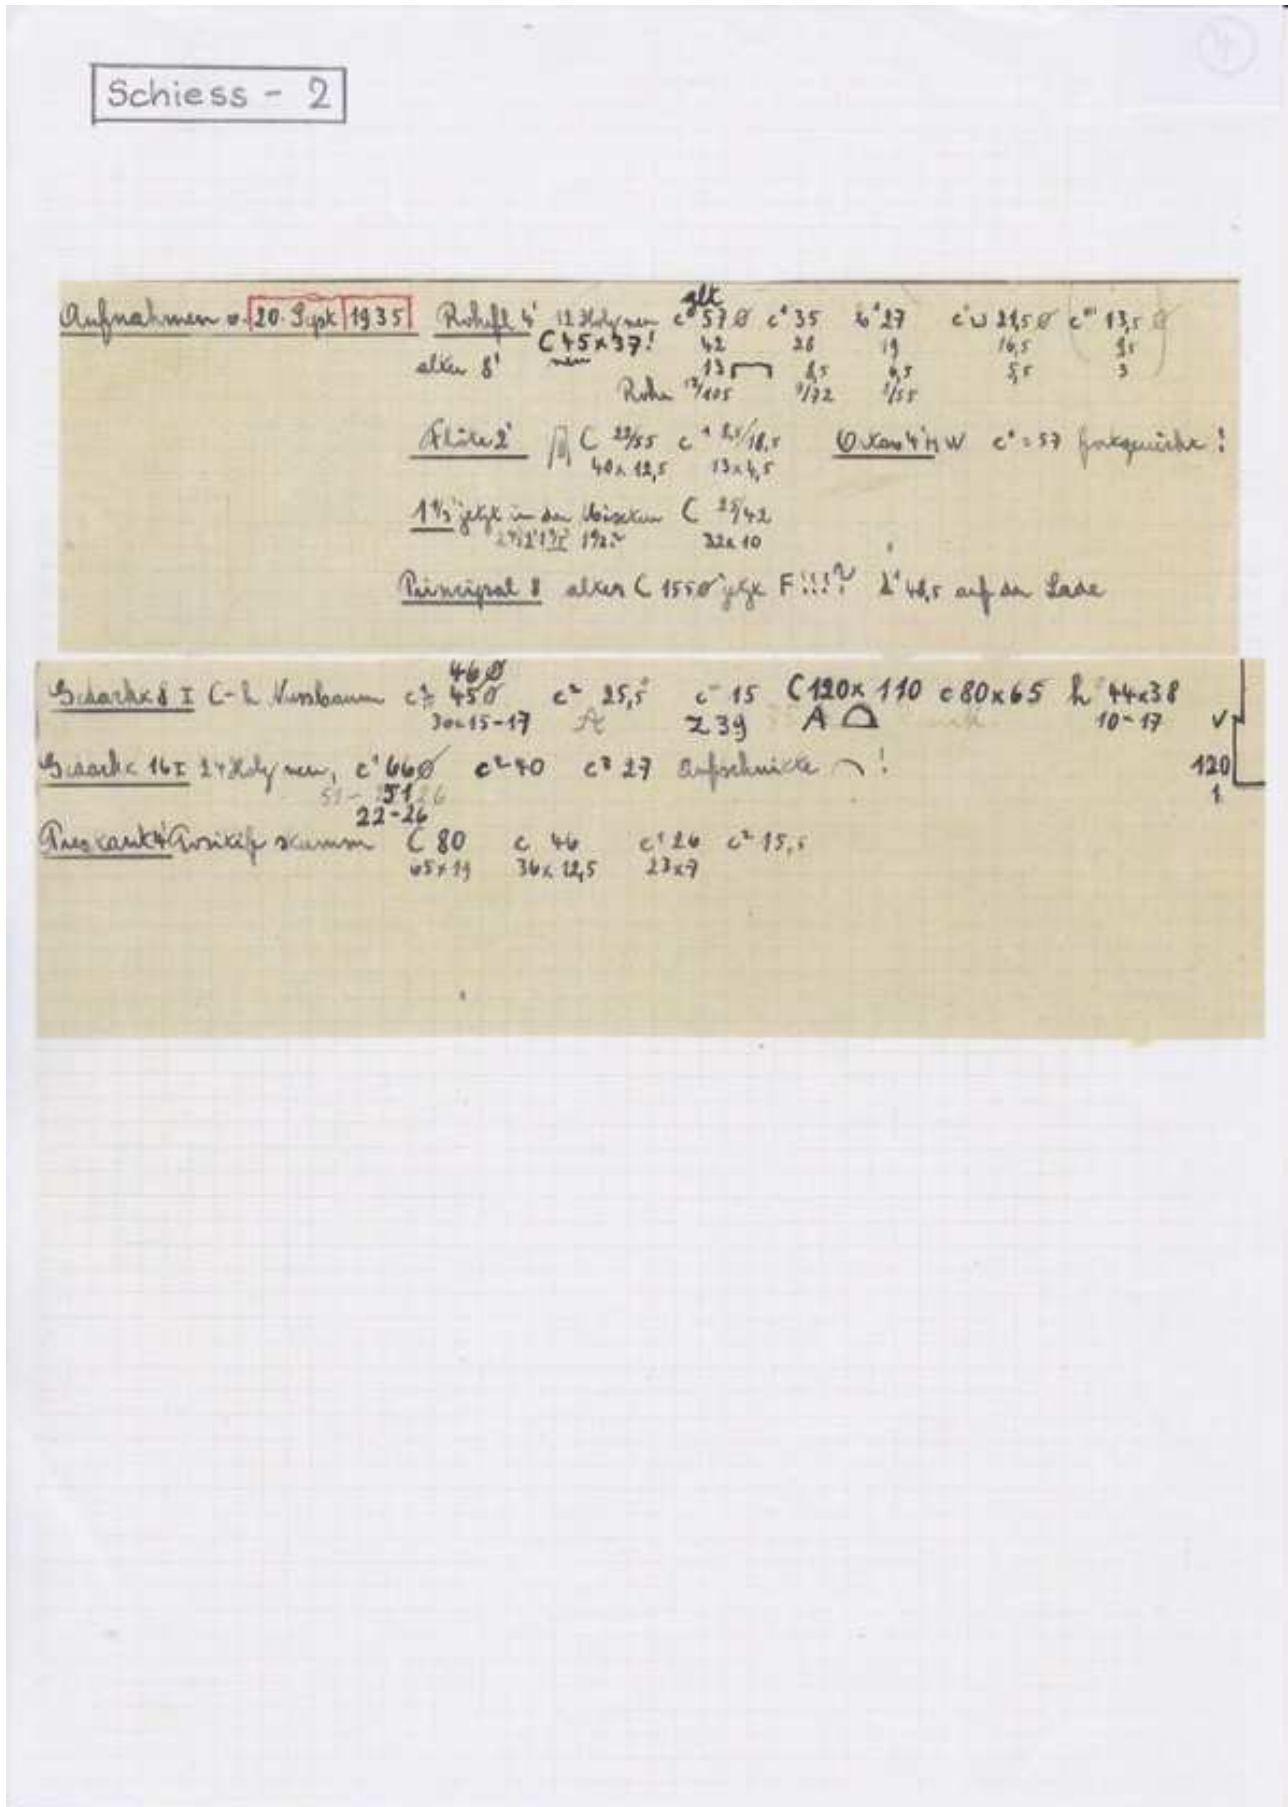 4
Schiess - 2
Aufnahmen v. 20. Sept 1935 Rohrfl 4' 12 Holz neu c° 57 Ø c' 35 27 21,5 Ø c''' 13,5 Ø
C 45 x 37! 42 28 19 16,5
alter 8' neu 13 8,5 6,5 5,5 3
Rohr 13/105 9/72 /55
Flöte 2' C 22/55 c 8,5/18,5 Oktav 4' HW c° = 57 fortgerückt !
40 x 12,5 13 x 4,5
1 1/3 jetzt in der Mixtur C 25/42
32 x 10
Principal 8 altes C 155 Ø jetzt F!!!? 48,5 auf der Lade
46 Ø
8 I C-h Nussbaum 45 Ø c² 25,5 c 15 C 120 x 110 c 80 x 65 h 44 x 38
30 15-17 239 A 10-17 V
16 I 24 Holz neu, c' 66 Ø c² 40 c³ 27 Aufschnitte ! 120
51 1
22-26
Prestant 4' Positif stumm C 80 c 46 c' 26 c² 15,5
65 x 19 36 x 12,5 23 x 7